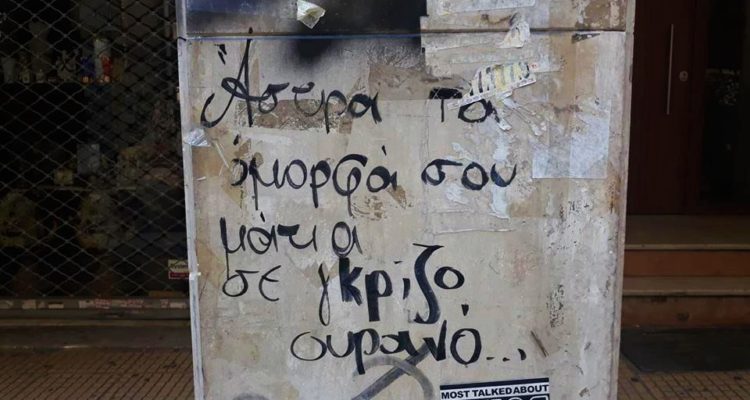 Άστρα τα
όμορφά σου
μάτια
σε γκρίζο
ουρανό...
MOST TALKED ABOUT